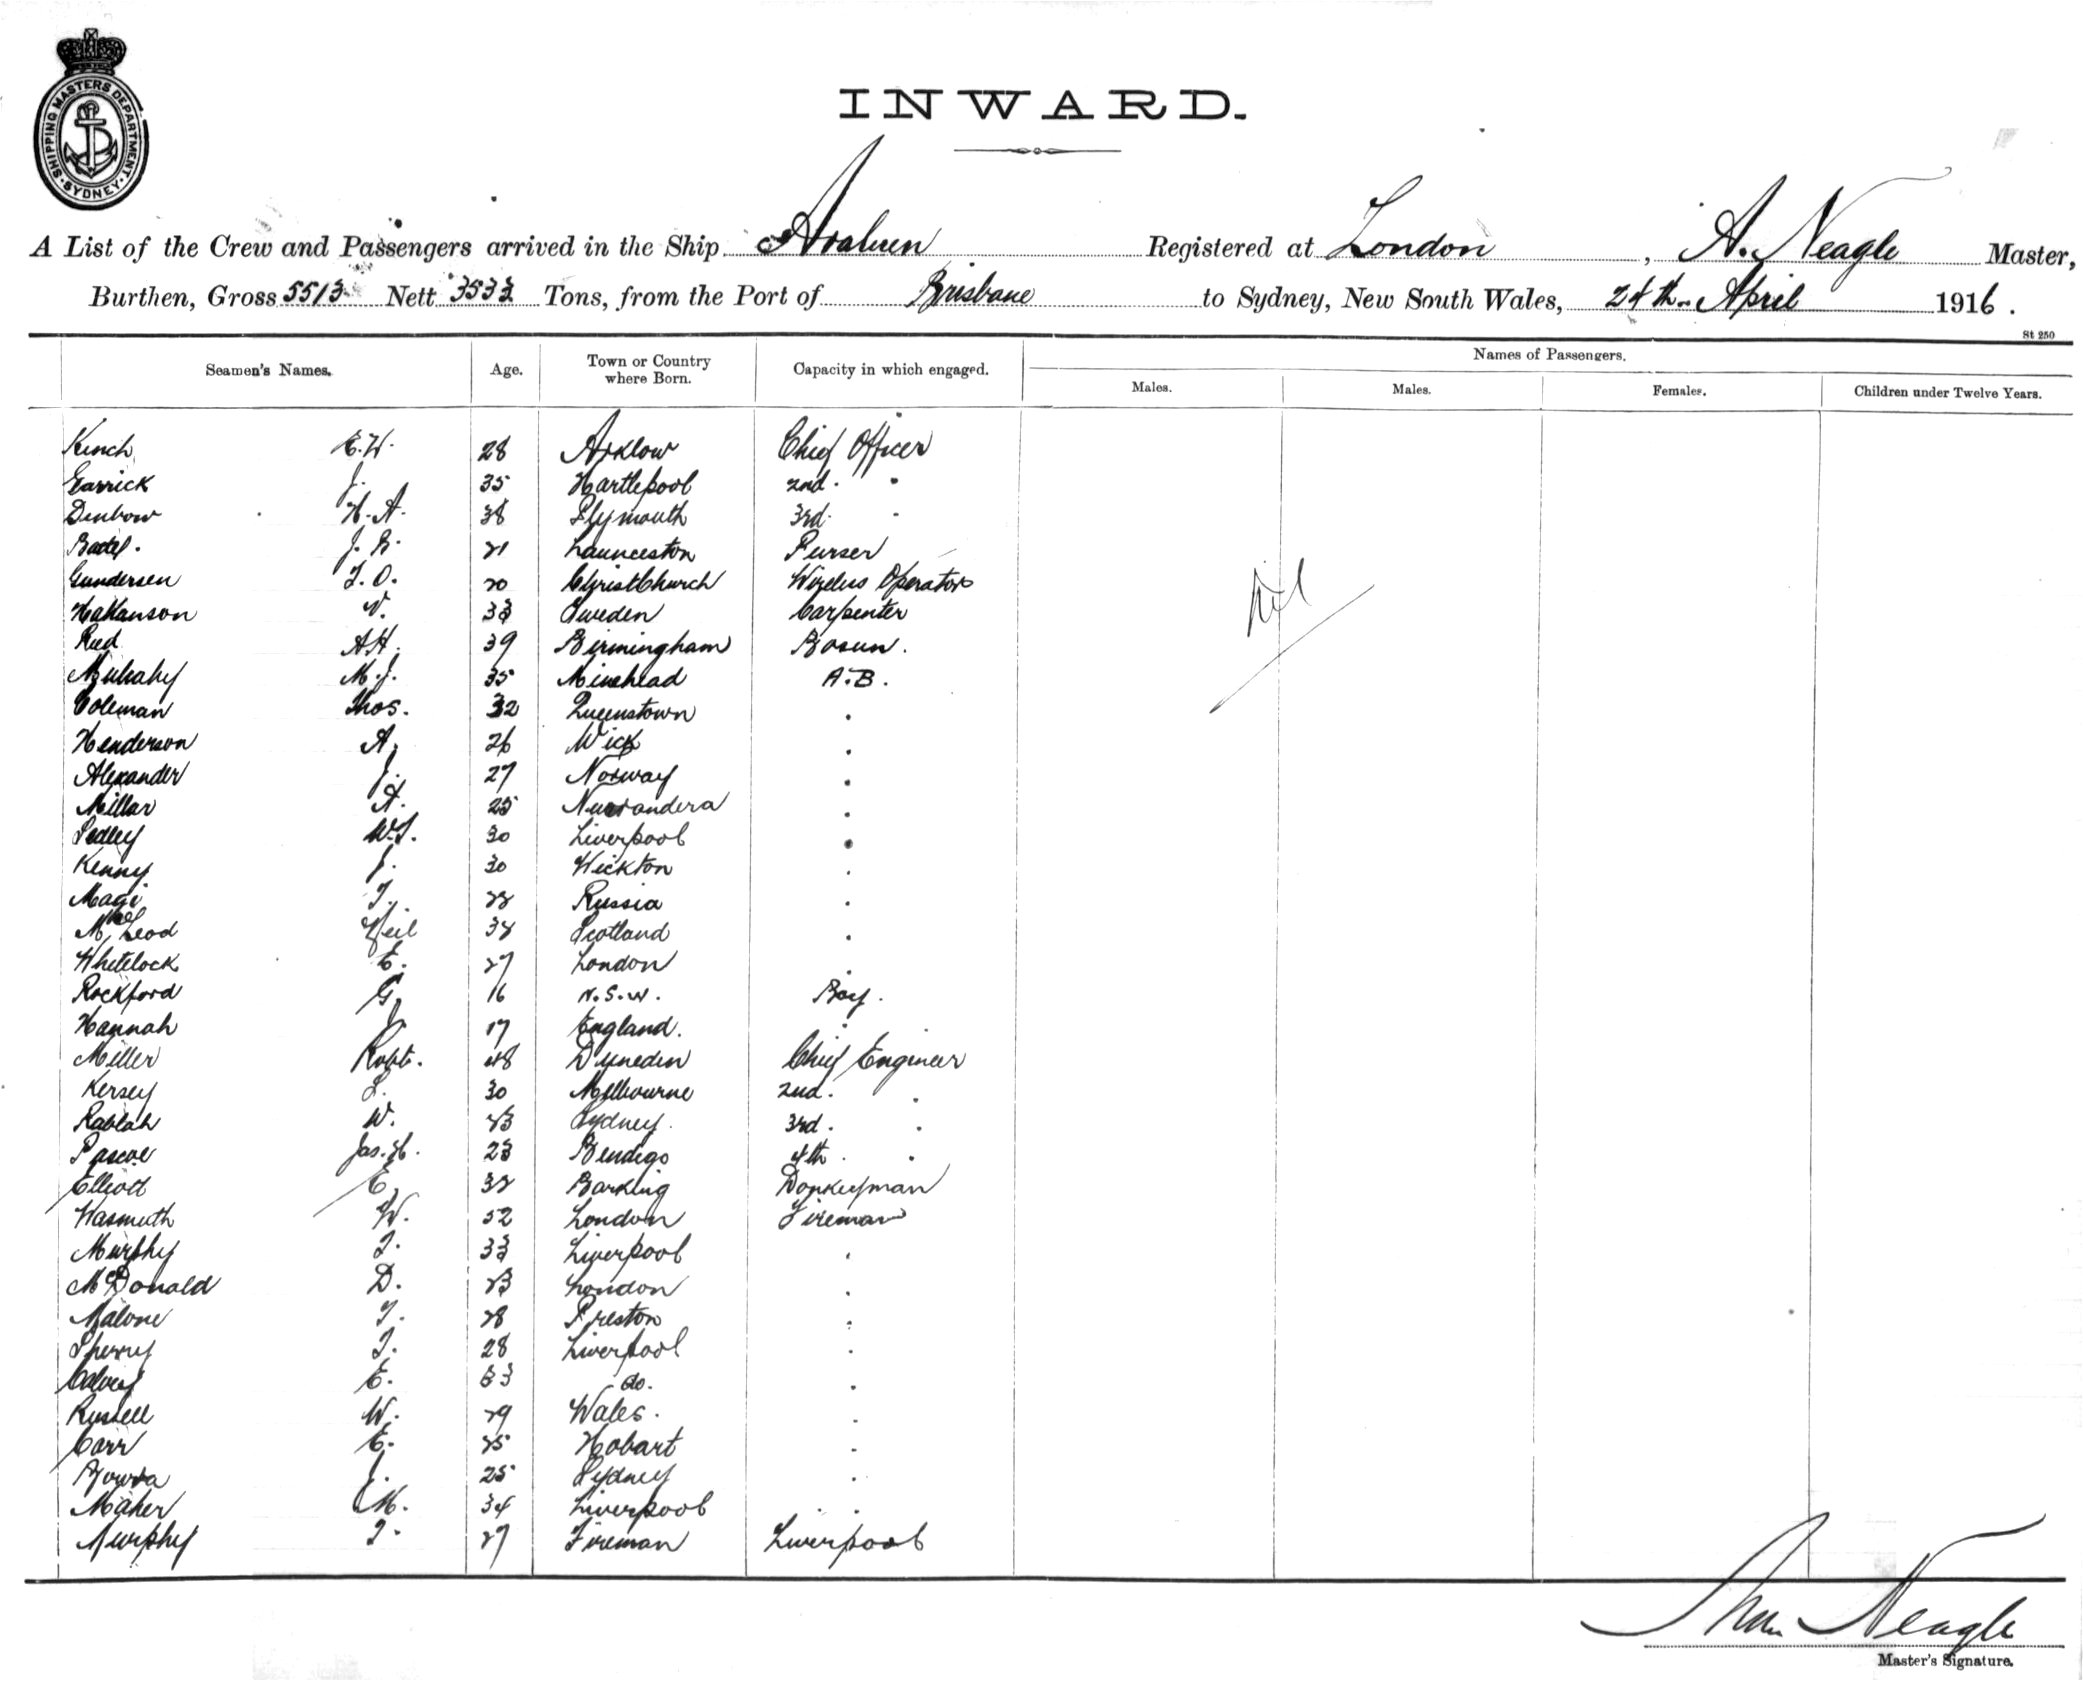 SHIPPING MASTERS DEPARTMENT. SYDNEY.
INWARD.
A List of the Crew and Passengers arrived in the Ship Registered at London, A. Neagle Master,
Burthen, Gross 5513 Nett 3533 Tons, from the Port of Brisbane to Sydney, New South Wales, 24th April 1916.
St 250
Seamen's Names. Age. Town or Country where Born. Capacity in which engaged. Names of Passengers.
Males. Males. Females. Children under Twelve Years.
Kinch E.W. 28 Arklow Chief Officer
Garrick J. 35 Hartlepool 2nd "
Denbow H.A. 38 Plymouth 3rd "
J.B. 21 Launceston Purser
Gundersen T.O. 20 ChristChurch Wireless Operator
Hakanson V. 33 Sweden Carpenter
Nil
Reed A.H. 39 Birmingham Bosun.
Mulcahy M.J. 35 Minehead A.B.
Coleman Thos. 32 Queenstown "
Henderson A. 26 Wick "
Alexander J. 27 Norway "
Millar A. 25 Narrandera "
Sedley W.S. 30 Liverpool "
Kenny J. 30 Wickton "
Magi T. 22 Russia "
McLeod Neil 38 Scotland "
Whitelock E. 27 London "
Rockford G. 16 N.S.W. Boy.
Hannah J. 17 England. "
Miller Robt. 48 Dunedin Chief Engineer
Kersey L. 30 Melbourne 2nd. "
Rablah W. 23 Sydney. 3rd. "
Pascoe Jas. H. 23 Bendigo 4th. "
Elliott E. 32 Barking Donkeyman
Wasmuth W. 52 London Fireman
Murphy T. 33 Liverpool "
McDonald D. 23 London "
Malone T. 28 Preston "
Sperry T. 28 Liverpool "
Calvey E. 33 do. "
Russell W. 29 Wales. "
Carr E. 25 Hobart "
J. 25 Sydney "
Maher M. 34 Liverpool "
Murphy T. 27 Fireman Liverpool
Neagle
Master's Signature.